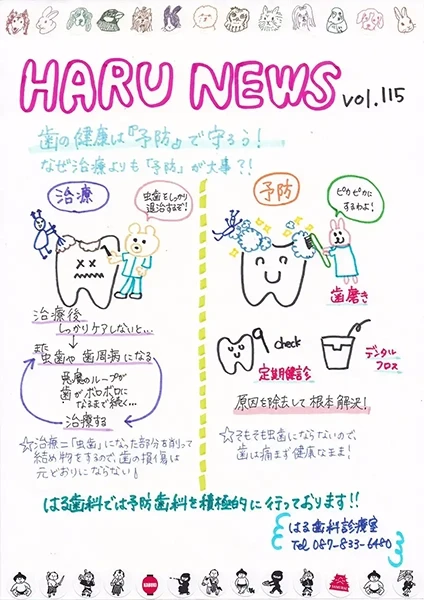 HARU NEWS vol.115
歯の健康は『予防』で守ろう!
なぜ治療よりも「予防」が大事?!
治療
虫歯をしっかり
退治するぞ!
治療後
しっかりケアしないと…
また
虫歯や歯周病になる
悪魔のループが
歯がボロボロに
なるまで続く…
治療する
☆治療=「虫歯」になった部分を削って
詰め物をするので、歯の損傷は
元どおりにならない!
予防
ピカピカに
するわよ!
歯磨き
check
定期健診
デンタル
フロス
原因を除去して根本解決!
☆そもそも虫歯にならないので、
歯は痛まず健康なまま!
はる歯科では予防歯科を積極的に行っております!!
はる歯科診療室
Tel 087-833-6480